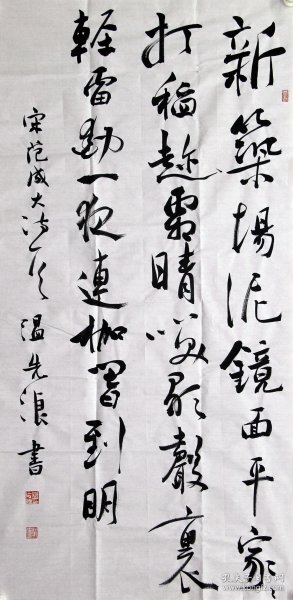 新築場泥鏡面平家〻
打稻趁霜晴笑歌聲裏
輕雷動一夜連枷響到明
宋范成大詩一首 温先浪書